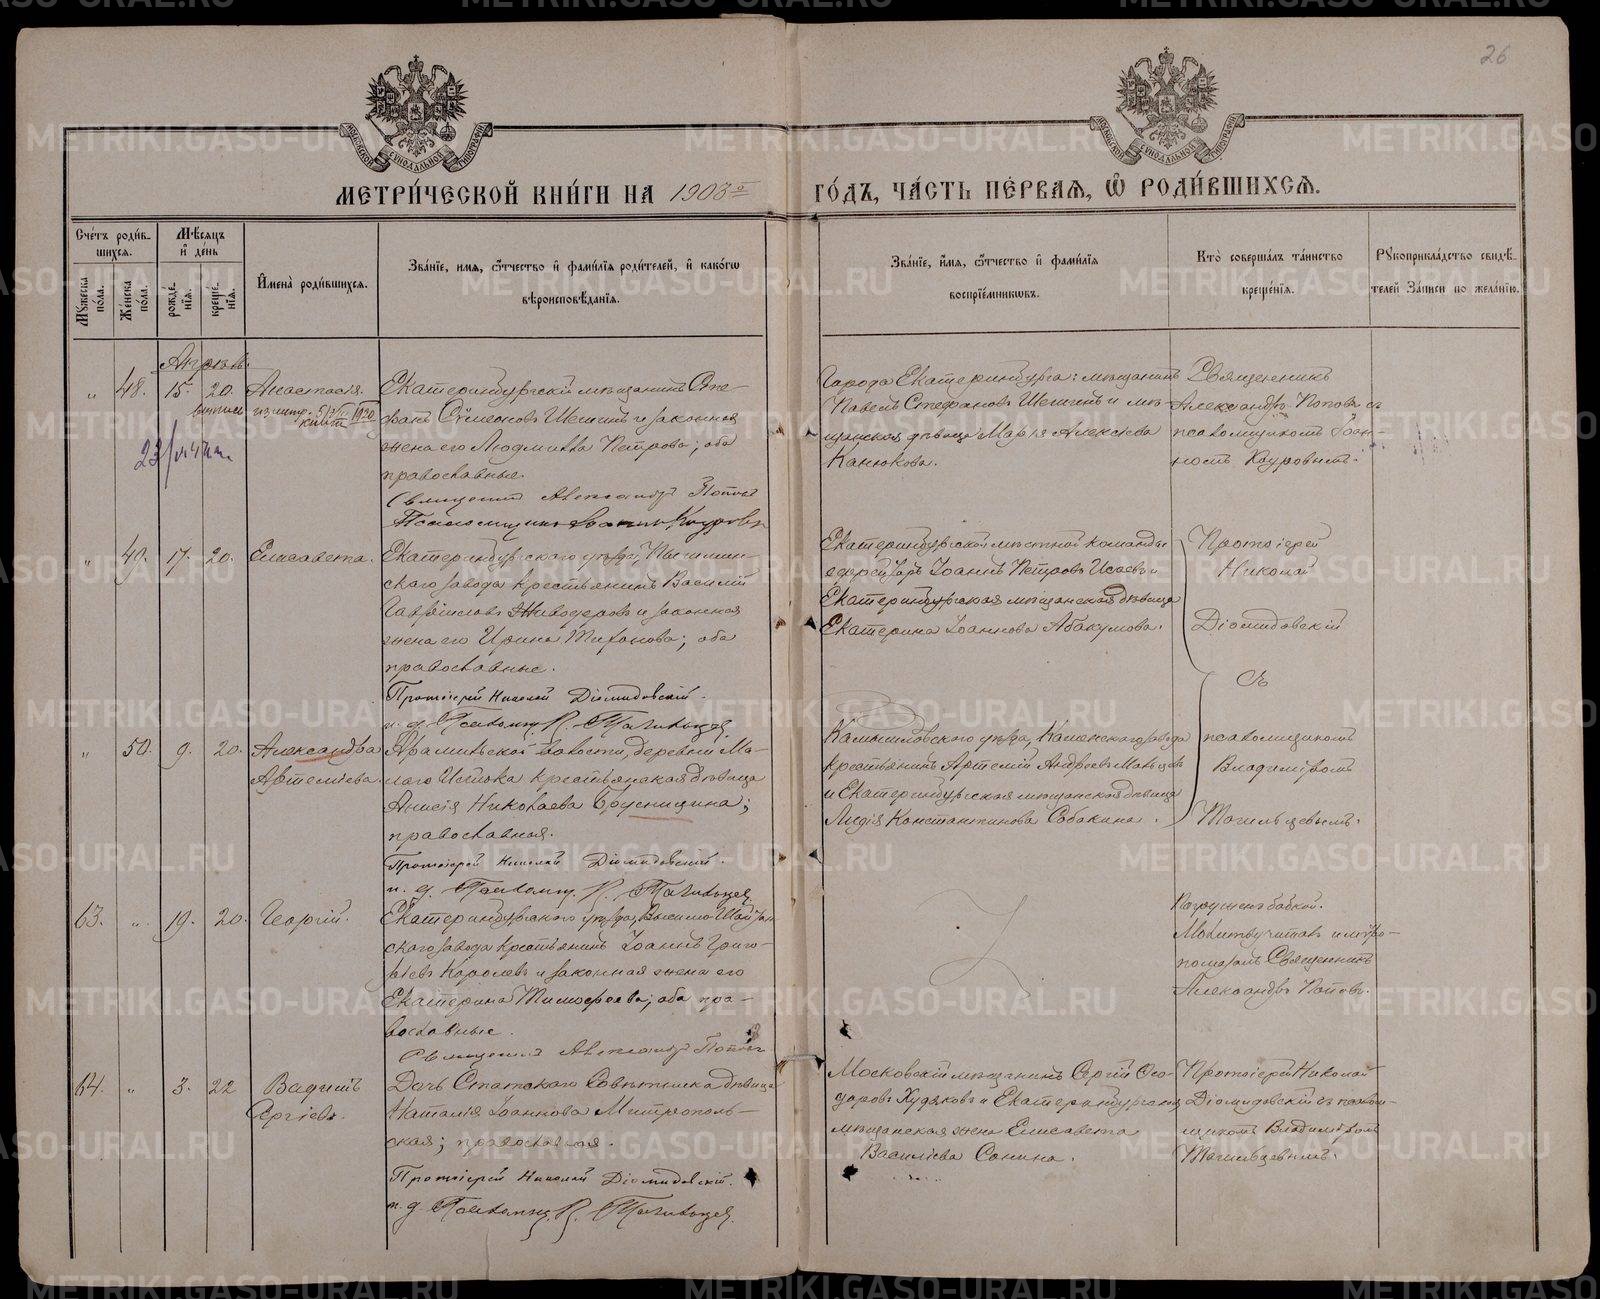 26
МОСКОВСКОЙ СѴНОДАЛЬНОЙ ТИПОГРАФІИ
МОСКОВСКОЙ СѴНОДАЛЬНОЙ ТИПОГРАФІИ
МЕТРИ́ЧЕСКОЙ КНИ́ГИ НА 1903-й
ГО́ДЪ, ЧА́СТЬ ПЕ́РВАѦ, Ѽ РОДИ́ВШИХСѦ.
Сче́тъ роди́в-
шихсѧ.
Мꙋжеска по́ла.
Же́нска по́ла.
Мѣ́сѧцъ и҆ де́нь
рожде́нїѧ.
креще́нїѧ.
И҆мена̀ роди́вшихсѧ.
Зва́нїе, и́мѧ, ѻ҆́тчество и҆ фамі́лїѧ роди́телей, и҆ како́гѡ
вѣроисповѣ́данїѧ.
Зва́нїе, и҆́мѧ, ѻ҆́тчество и҆ фамі́лїѧ
воспрїе́мникѡвъ.
Кто̀ соверша́лъ та́инство
креще́нїѧ.
Рꙋкоприкла́дство свидѣ́-
телей за́писи по жела́нїю.
Апрѣль.
„ 48. 15. 20. Анастасія.
выпись из метр. книги 1920
23/VI 47 г.
Екатеринбургскій мѣщанинъ Сте-
фанъ Сѵмеоновъ Шешинъ и законная
жена его Людмилла Петрова; оба
православные.
Священникъ Александръ Поповъ
Псаломщикъ Іоаннъ Кауровъ
Города Екатеринбурга: мѣщанинъ
Павелъ Стефановъ Шешинъ и мѣ-
щанская дѣвица Марія Алексіева
Канюкова.
Священникъ
Александръ Поповъ съ
псаломщикомъ Іоан-
номъ Кауровымъ.
„ 49. 17. 20. Елисавета.
Екатеринбургскаго уѣзда, Пышмин-
скаго завода крестьянинъ Василій
Гавріиловъ Живодеровъ и законная
жена его Ирина Тиханова; оба
православные.
Протоіерей Николай Діомидовскій.
и. д. Псаломщ. В. Тагильцев.
Екатеринбургской мѣстной команды
ефрейторъ Іоаннъ Петровъ Исаевъ и
Екатеринбургская мѣщанская дѣвица
Екатерина Іоаннова Абакумова.
Протоіерей
Николай
Діомидовскій
съ
псаломщикомъ
Владиміромъ
Тагильцевымъ.
„ 50. 9. 20. Александра
Артеміева.
Арамильской волости, деревни Ма-
лаго Истока крестьянская дѣвица
Анисія Николаева Брусницина;
православная.
Протоіерей Николай Діомидовскій.
и. д. Псаломщ. В. Тагильцев
Камышловскаго уѣзда, Каменскаго завода
крестьянинъ Артемій Андреевъ Мальцевъ
и Екатеринбургская мѣщанская дѣвица
Лидія Константинова Собакина.
63. „ 19. 20. Георгій.
Екатеринбургскаго уѣзда, Висимо-Шайтан-
скаго завода крестьянинъ Іоаннъ Григо-
рьевъ Королевъ и законная жена его
Екатерина Тимофеева; оба пра-
вославные.
Священникъ Александръ Поповъ
Погруженъ бабкой.
Молитву читалъ и мѵро-
помазалъ Священникъ
Александръ Поповъ.
64. „ 3. 22 Вадимъ
Сергіевъ.
Дочь Статскаго Совѣтника дѣвица
Наталія Іоаннова Митрополь-
ская; православная.
Протоіерей Николай Діомидовскій.
и. д. Псаломщ. В. Тагильцев.
Московскій мѣщанинъ Сергій Ѳео-
доровъ Худяковъ и Екатеринбургская
мѣщанская жена Елисавета
Василіева Сонина.
Протоіерей Николай
Діомидовскій съ псалом-
щикомъ Владиміромъ
Тагильцевымъ.
METRIKI.GASO-URAL.RU